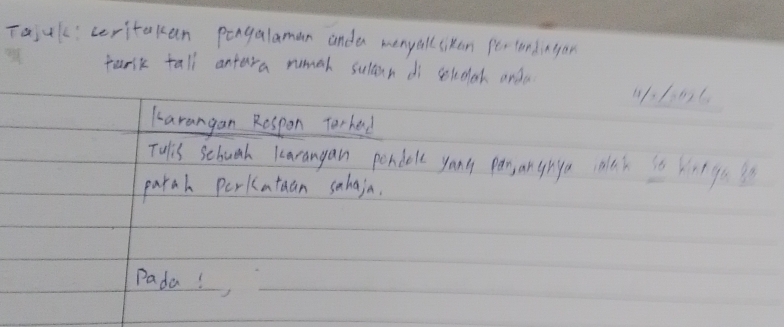 Tajuk: ceritakan pengalaman anda menyaksikan pertandingan
tarik tali antara rumah sukan di sekolah anda
Karangan Respon Terhad
Tulis sebuah karangan pendek yang panjangnya tidak hingga 80
patah perkataan sahaja.
Pada ! ,